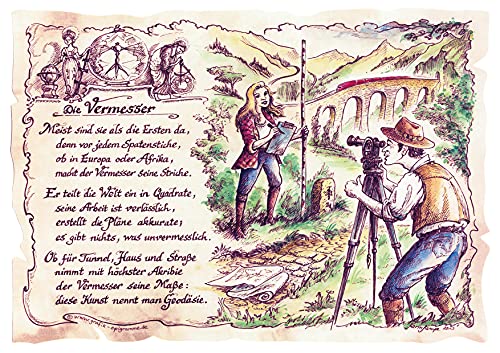 Die Vermesser
Meist sind sie als die Ersten da,
denn vor jedem Spatenstiche,
ob in Europa oder Afrika,
macht der Vermesser seine Striche.
Er teilt die Welt ein in Quadrate,
seine Arbeit ist verlässlich,
erstellt die Pläne akkurate;
es gibt nichts, was unvermesslich.
Ob für Tunnel, Haus und Straße
nimmt mit höchster Akribie
der Vermesser seine Maße:
diese Kunst nennt man Geodäsie.